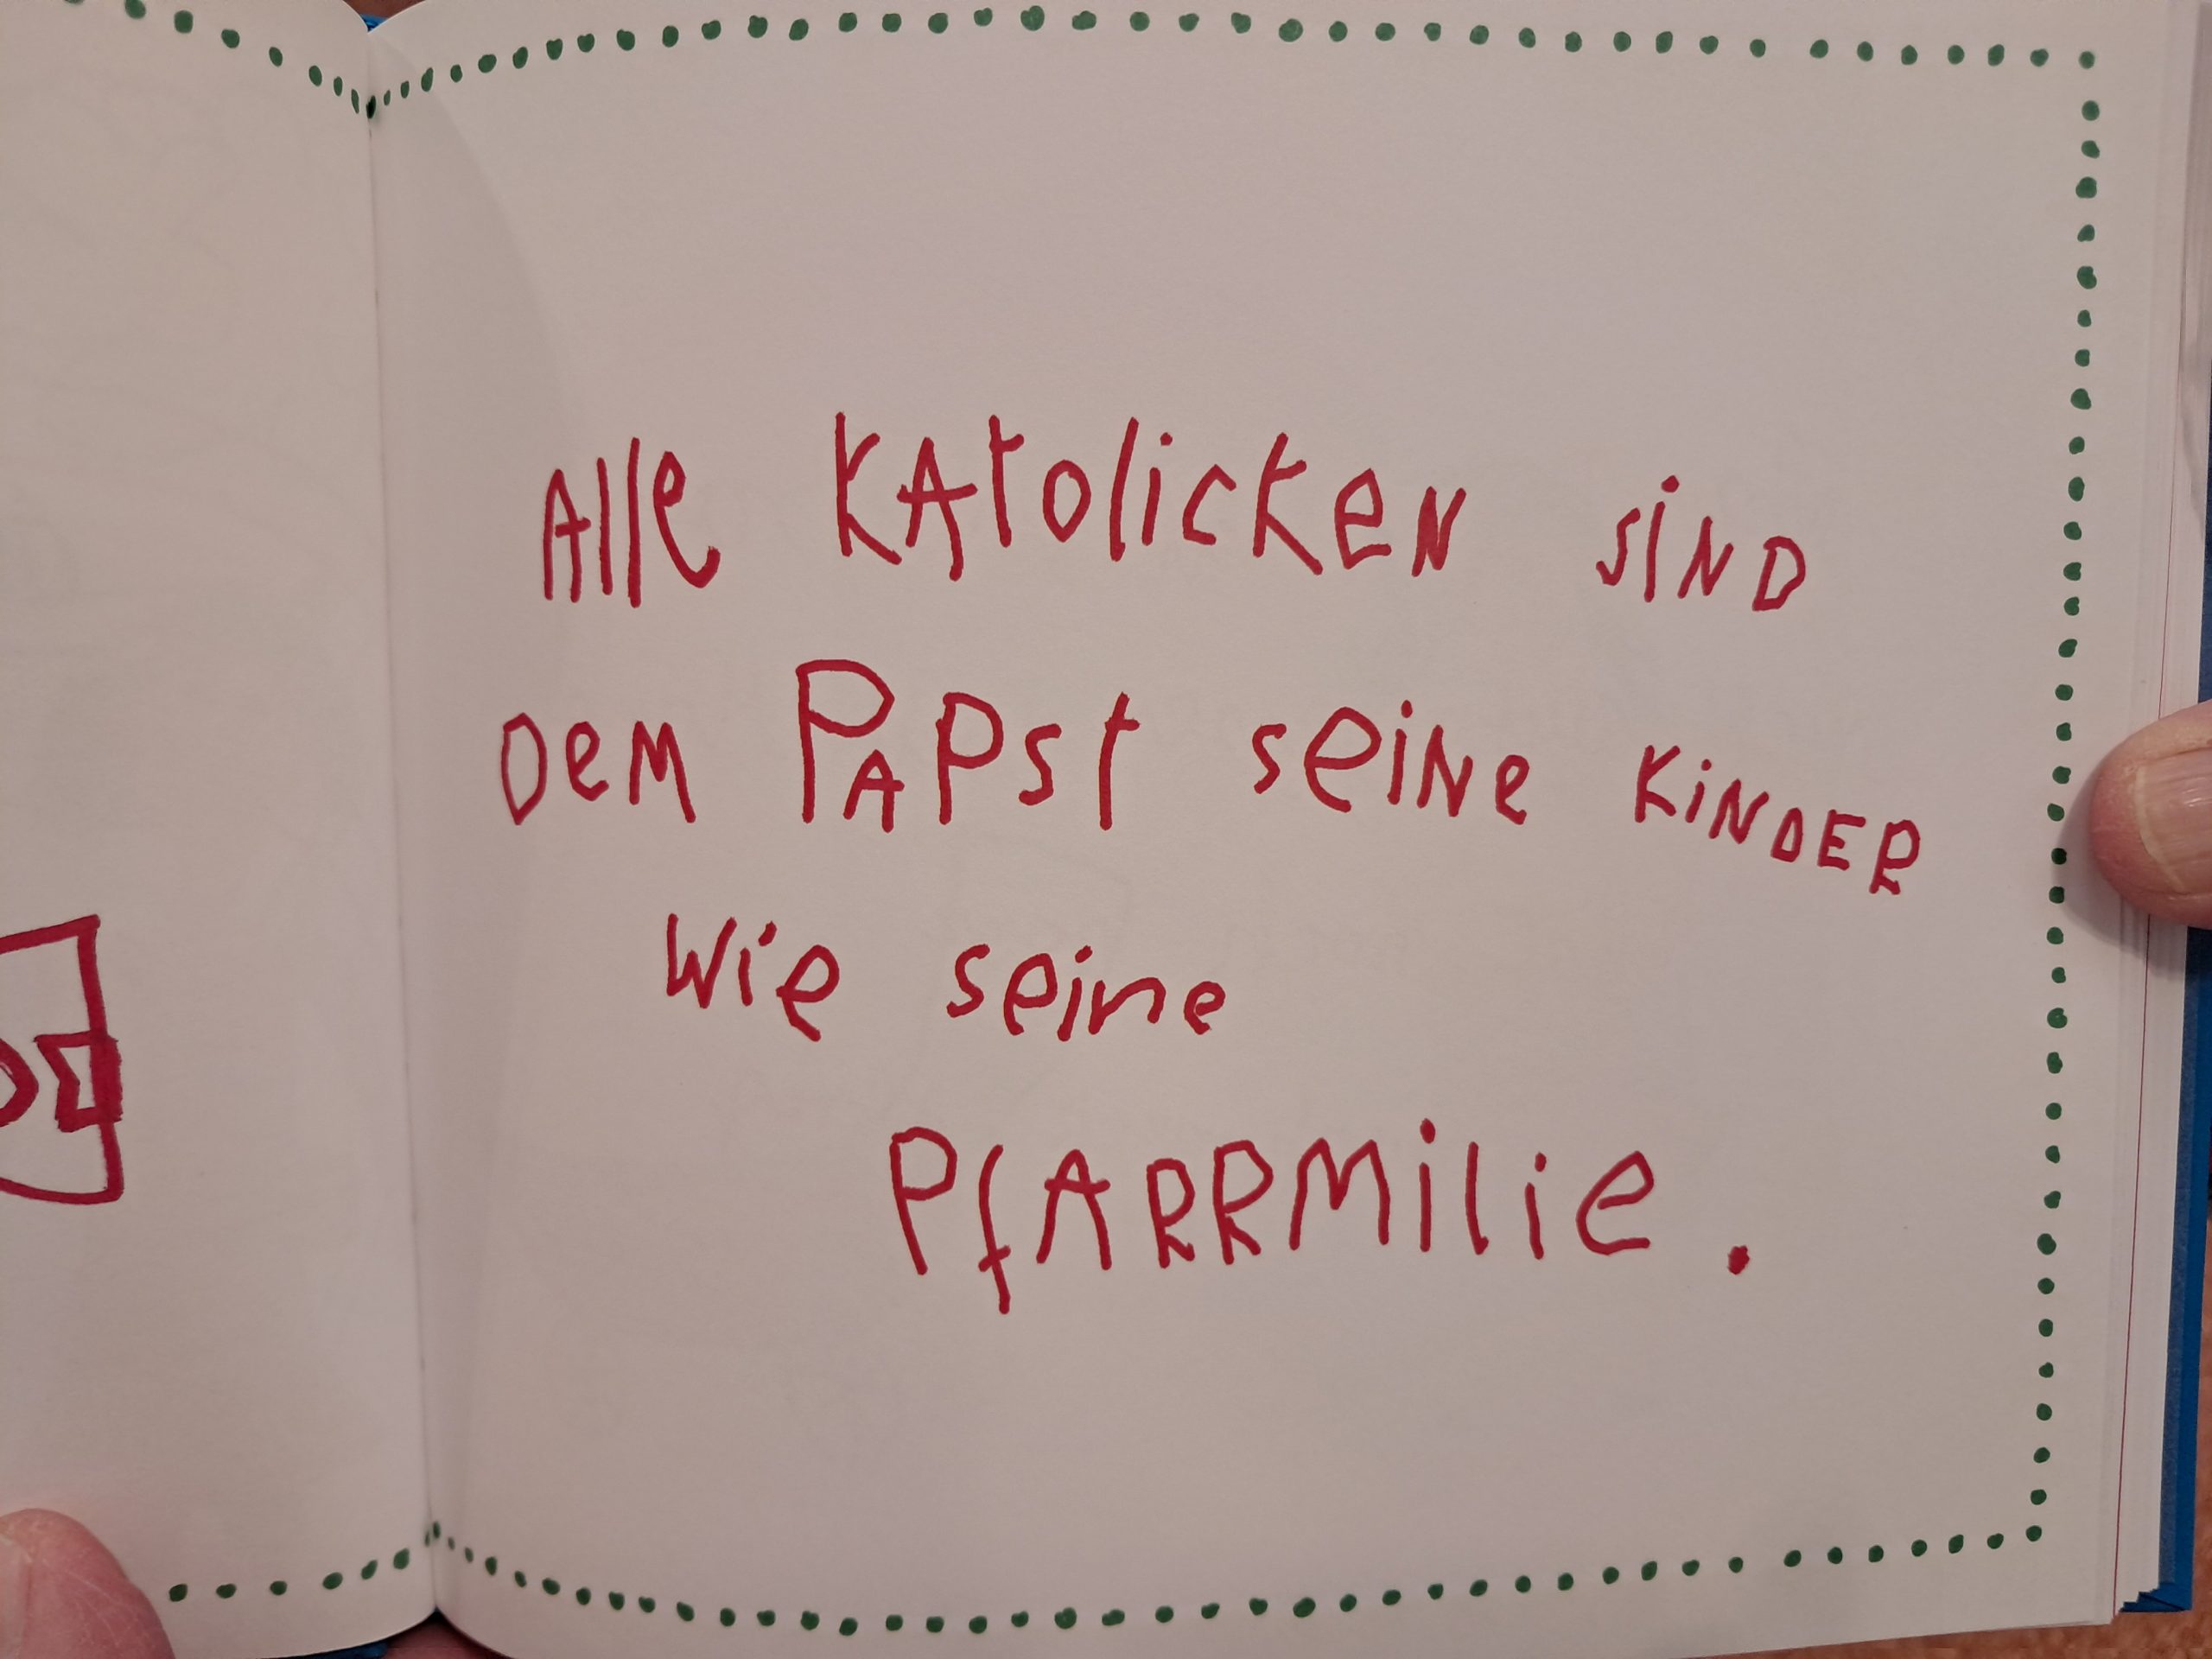 Alle KAtolicken sind
Dem PApst seine KiNDER
Wie seine
PfARRMilie.